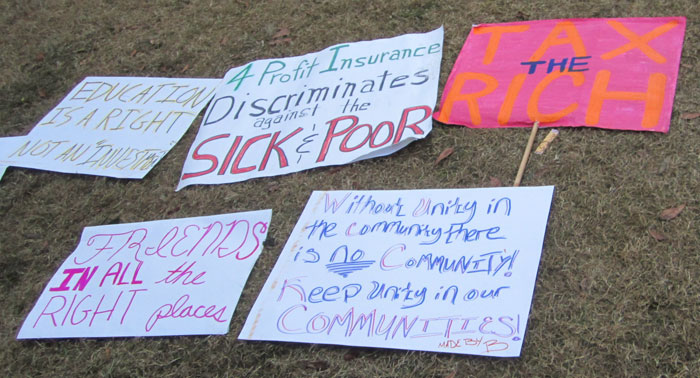 EDUCATION
IS A RIGHT
NOT AN INVESTMENT
4 Profit Insurance
Discriminates
against the
SICK & POOR
TAX
THE
RICH
FRiENDS
IN ALL the
RIGHT places
Without Unity in
the community there
is no COMMUNITY!
Keep Unity in our
COMMUNITIES!
MADE BY B